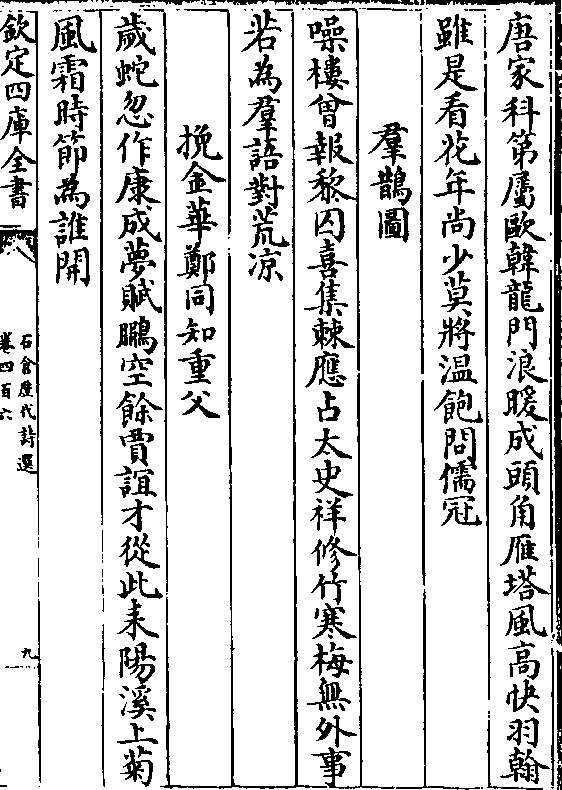 唐家科第屬歐韓龍門浪暖成頭角雁塔風高快羽翰
雖是看花年尚少莫將温飽問儒冠
羣鵲圖
噪樓曾報黎囚喜集棘應占太史祥修竹寒梅無外事
若為羣語對荒凉
挽金華鄭同知重父
歲蛇忽作康成夢賦鵩空餘賈誼才從此耒陽溪上菊
風霜時節為誰開
欽定四庫全書
石倉歷代詩選
卷四百六
九